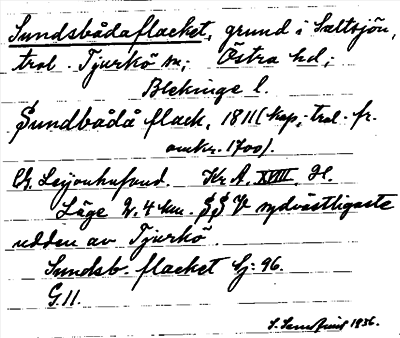 Sundsbådaflacket, grund i Saltsjön,
trol. Tjurkö sn; Östra hd;
Blekinge l.
Sundbådå flack, 1811 (kop; trol. fr.
omkr. 1700).
G. Leijonhufvud. Kr. A. XVIII. H.
Läge 2.4 km. SSV sydvästligaste
udden av Tjurkö.
Sundsb. flacket Sj: 96.
G 11.
1936.